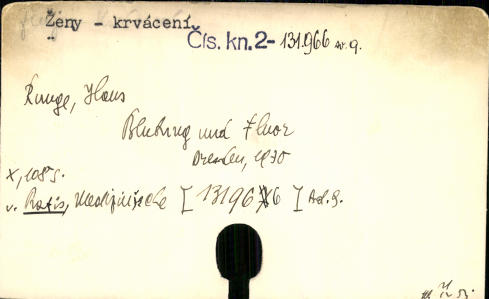 Ženy - krvácení
Čís. kn. 2- 131.966 sv. 9.
Runge, Hans
Blutung und Fluor
Dresden, 1930
X, 108 s.
v. Praxis, Medizinische [131966] sv. 9.